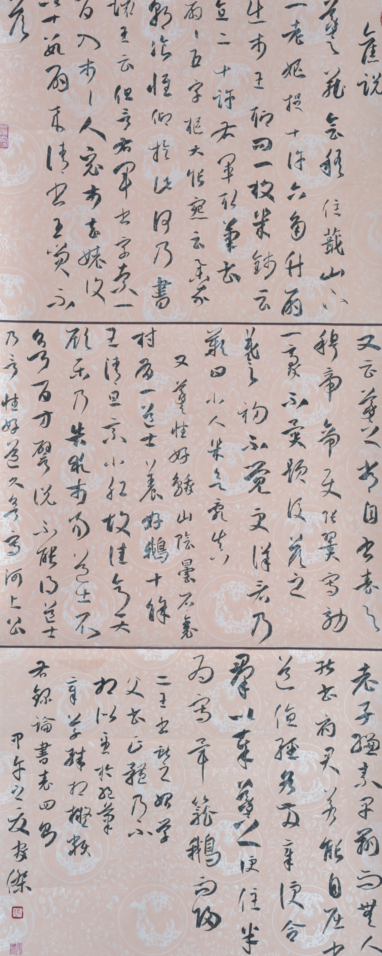 舊説
羲之罷會稽住蕺山下
一老嫗捉十許六角竹扇
出市王聊問一枚幾錢云
直二十許右軍取筆書
扇扇五字嫗大悵惋云舉家
朝餐惟仰於此何乃書
壞王云但言右軍書字索一
百入市市人競市去姥復
以十數扇來請書王笑不
答
又云羲之常自書表與
穆帝帝使張翼寫効
一毫不異題後答之
羲之初不覺更詳看乃
歎曰小人幾欲亂真
又羲性好鵝山陰曇
村有一道士養好鵝十餘
王清旦乘小船故往意大
願樂乃告求市易道士不
與百方譬說不能得道士
乃言性好道久欲寫河上公
老子縑素早辦而無人
能書府君若能自屈書
道德經各兩章便合
羣以奉羲之便住半
為寫畢籠鵝而歸
二王書獻之始學
父書正體乃不
相似至於絶筆
章草殊相擬類
右錄論書表四則
甲午之夏 傑